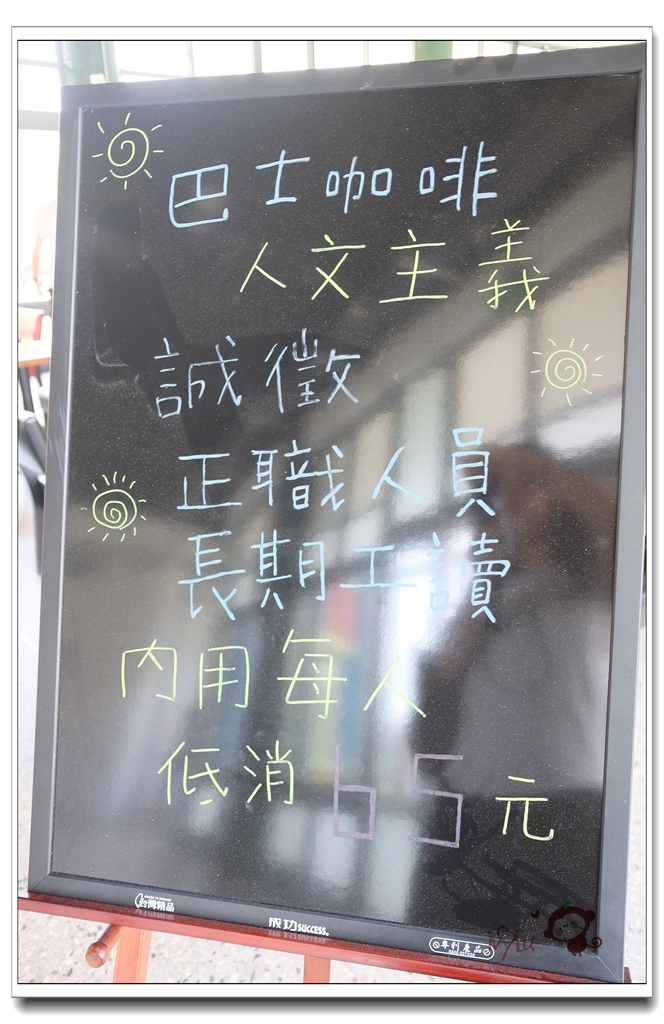 巴士咖啡
人文主義
誠徵
正職人員
長期工讀
內用每人
低消65元
台灣精品
成功SUCCESS.
專利產品